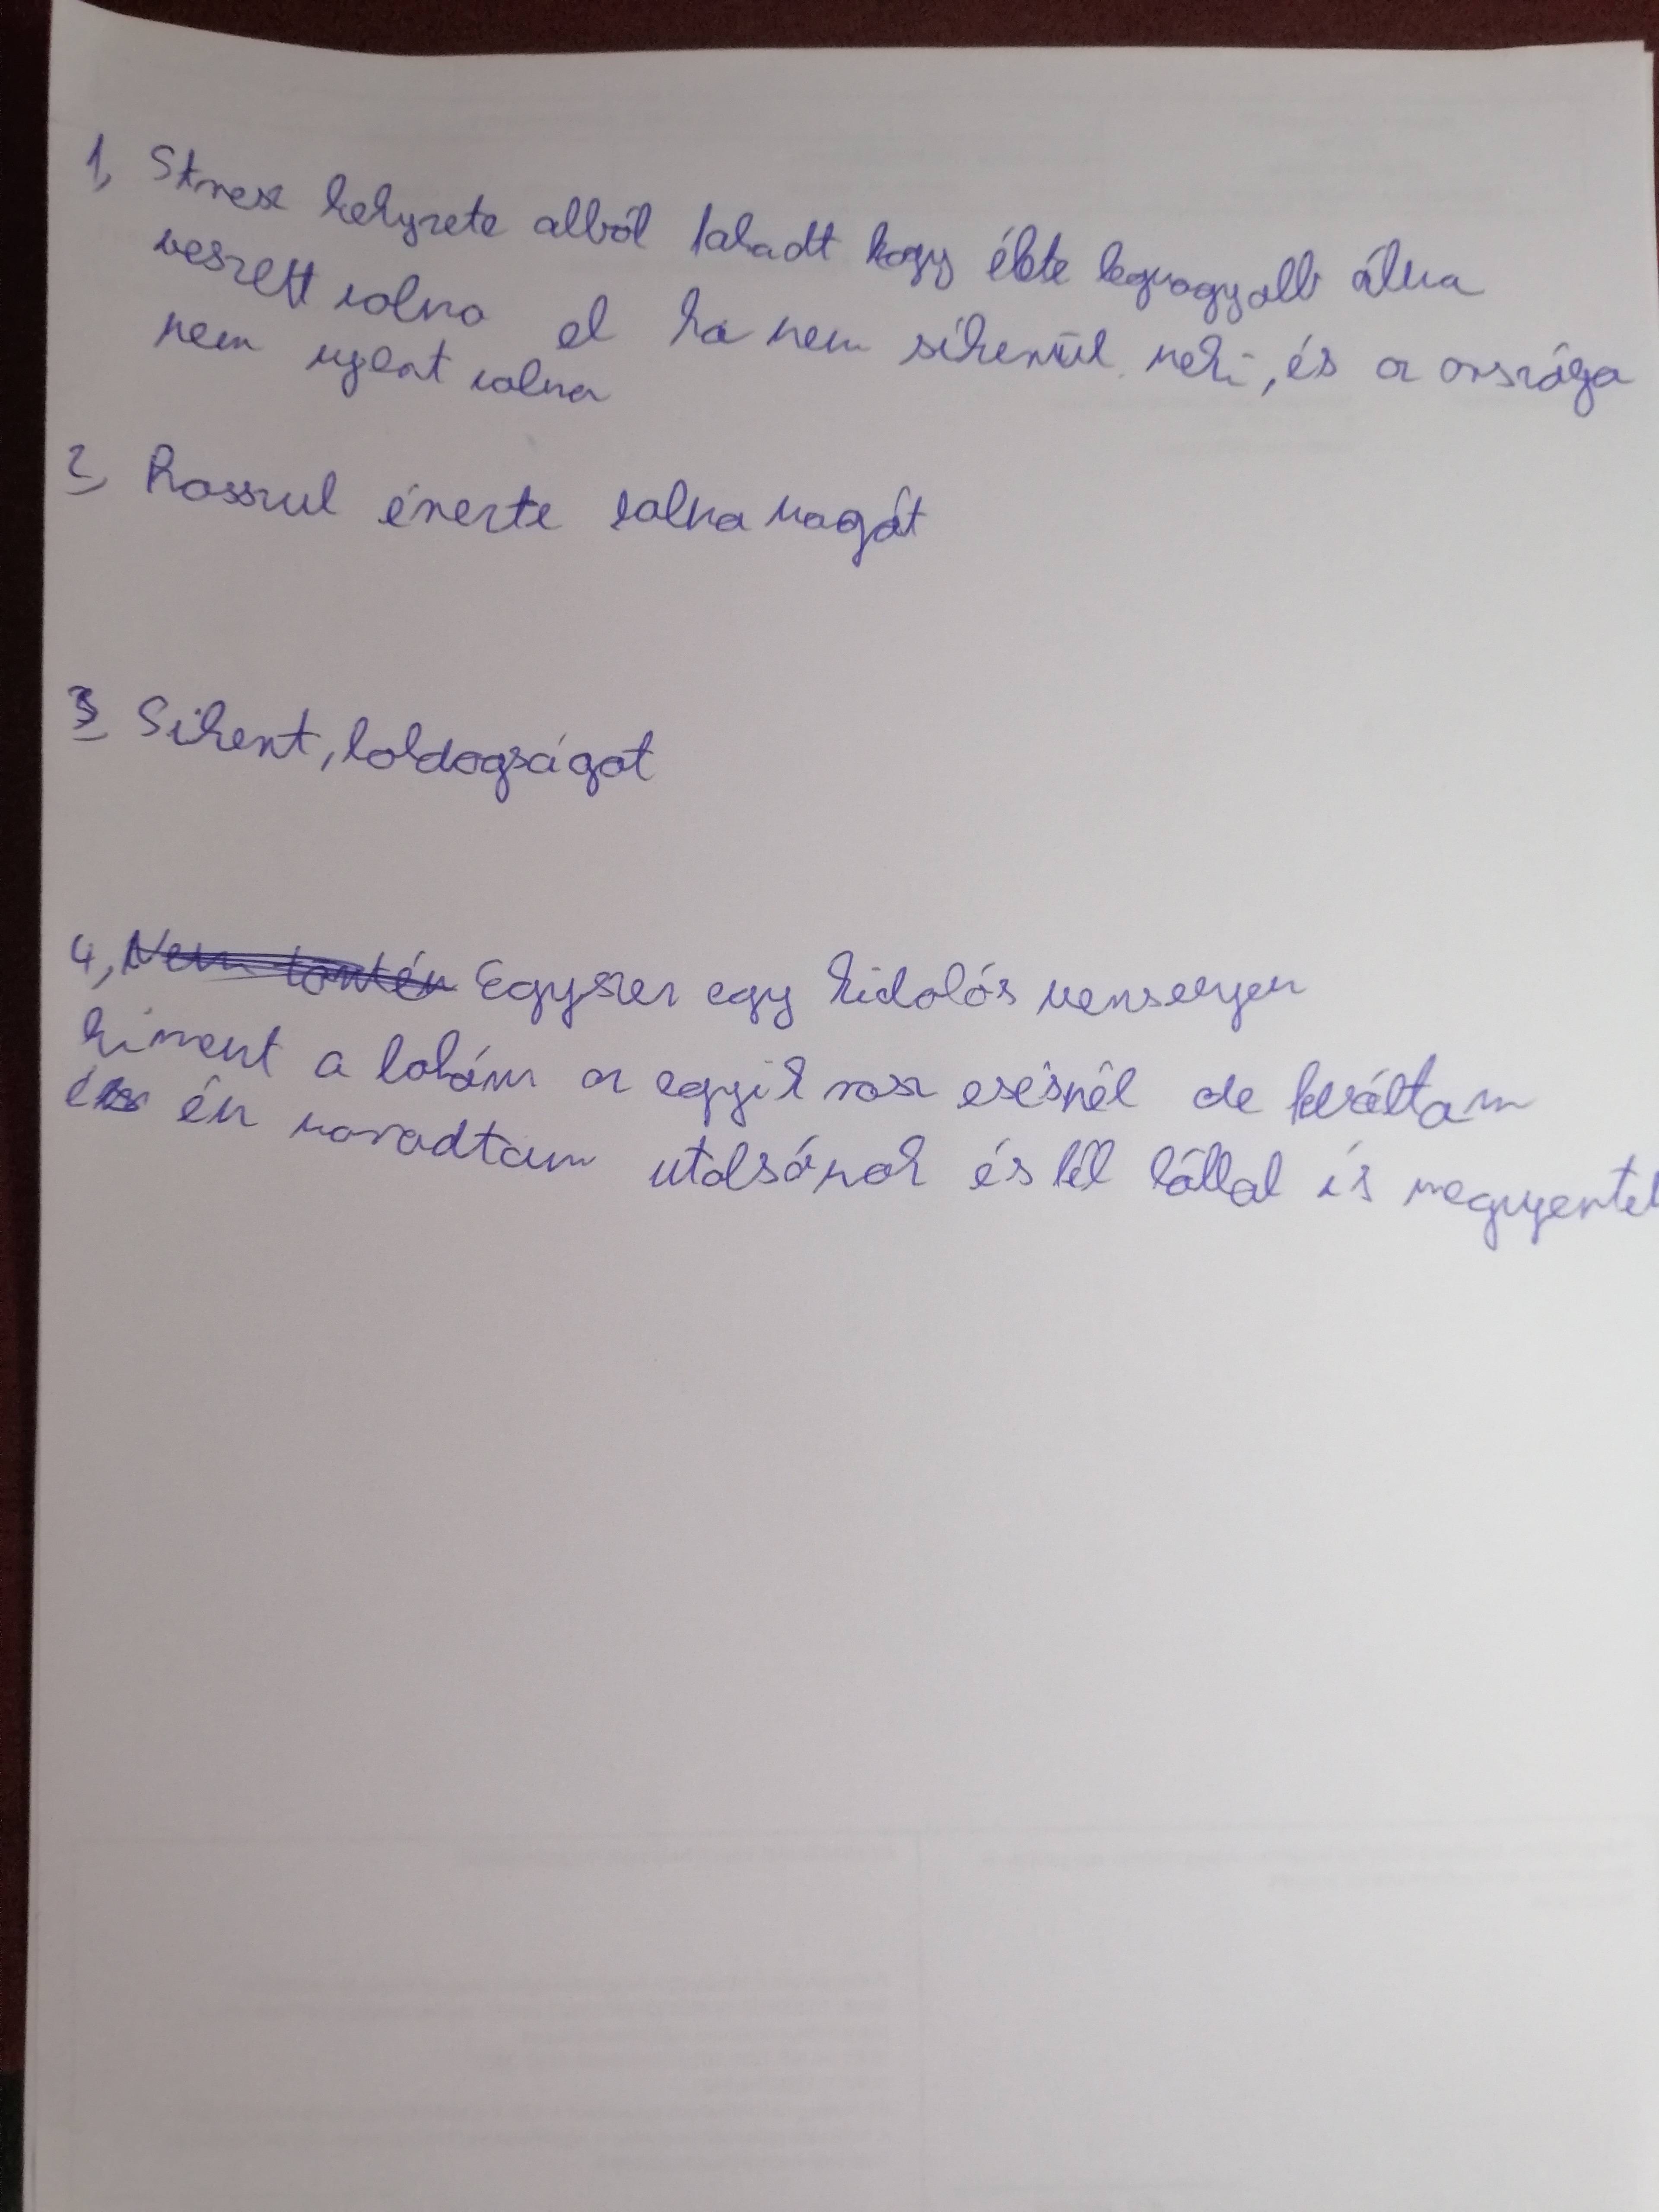 1, Stressz helyzete abból fakadt hogy élete legnagyobb álma
veszett volna el ha nem sikerül neki, és a országa
nem nyert volna
2, Rosszul érezte volna magát
3, Sikert, boldogságot
4, Nem történ Egyszer egy kidobós versenyen
kiment a bokám a egyik rosz esésnél de kiváltam
és én maradtam utolsónak és fél lábbal is megnyertel